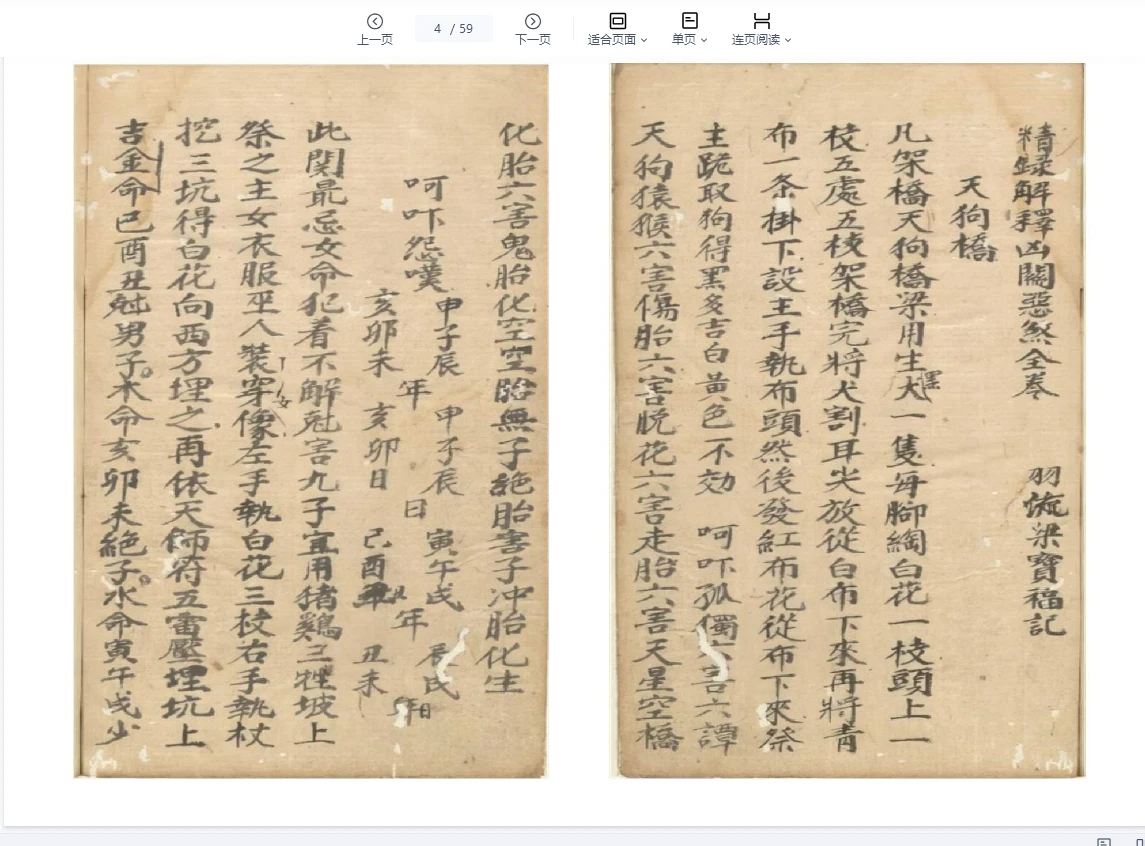 上一页
4 / 59
下一页
适合页面
单页
连页阅读
精録解釋凶關惡煞全卷 羽流梁寶福記
天狗橋
凡架橋天狗橋梁用生犬一隻每腳綯白花一枝頭上一
黑
枝五處五枝架橋完將犬割耳尖放從白布下來再將青
布一条掛下設主手執布頭然後發紅布花從布下來祭
主跪取狗得黑多吉白黃色不効 呵吓孤獨六害六譚
天狗猿猴六害傷胎六害脫花六害走胎六害天星空橋
化胎六害鬼胎化空空胎無子絕胎害子沖胎化生
呵吓怨嘆
申子辰 年 申子辰 日 寅午戌 年 辰戌
亥卯未 亥卯日 己酉 丑未 日
此関最忌女命犯着不解尅害九子宜用猪鷄三牲坡上
祭之主女衣服巫人裝穿像左手執白花三枝右手執杖
女
挖三坑得白花向西方埋之再依天師符五雷壓埋坑上
吉金命巳酉丑尅男子木命亥卯未絕子水命寅午戌少